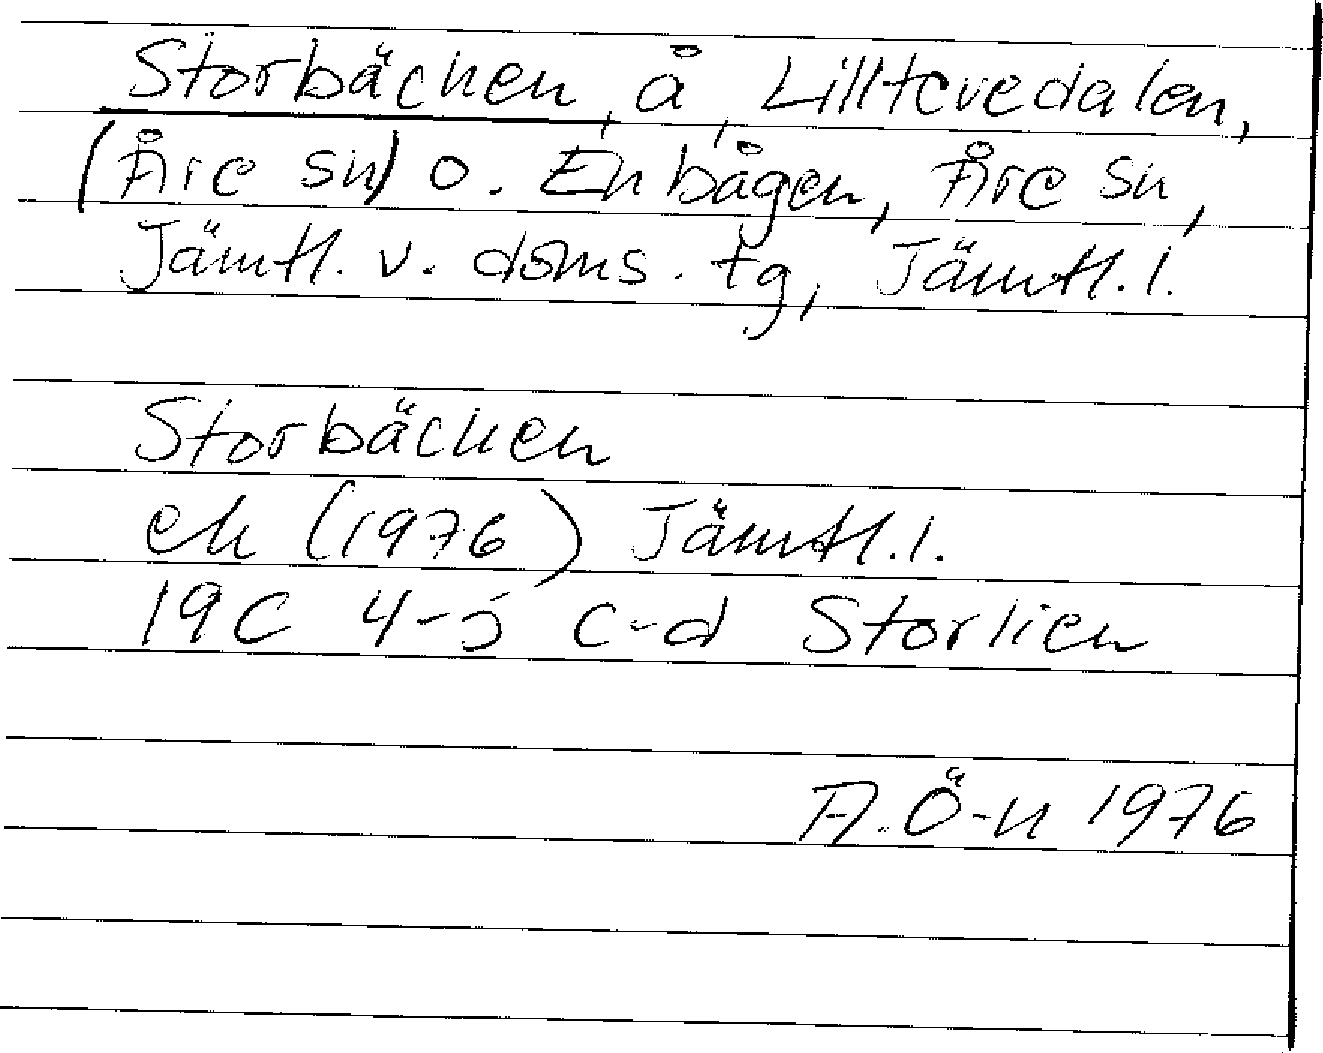 Storbäcken, å, Lilltevedalen,
(Åre sn) o. Enbågen, Åre sn,
Jämtl. v. doms. tg, Jämtl. l.
Storbäcken
ek (1976) Jämtl. l.
19C 4-5 c-d Storlien
A. Ö-n 1976